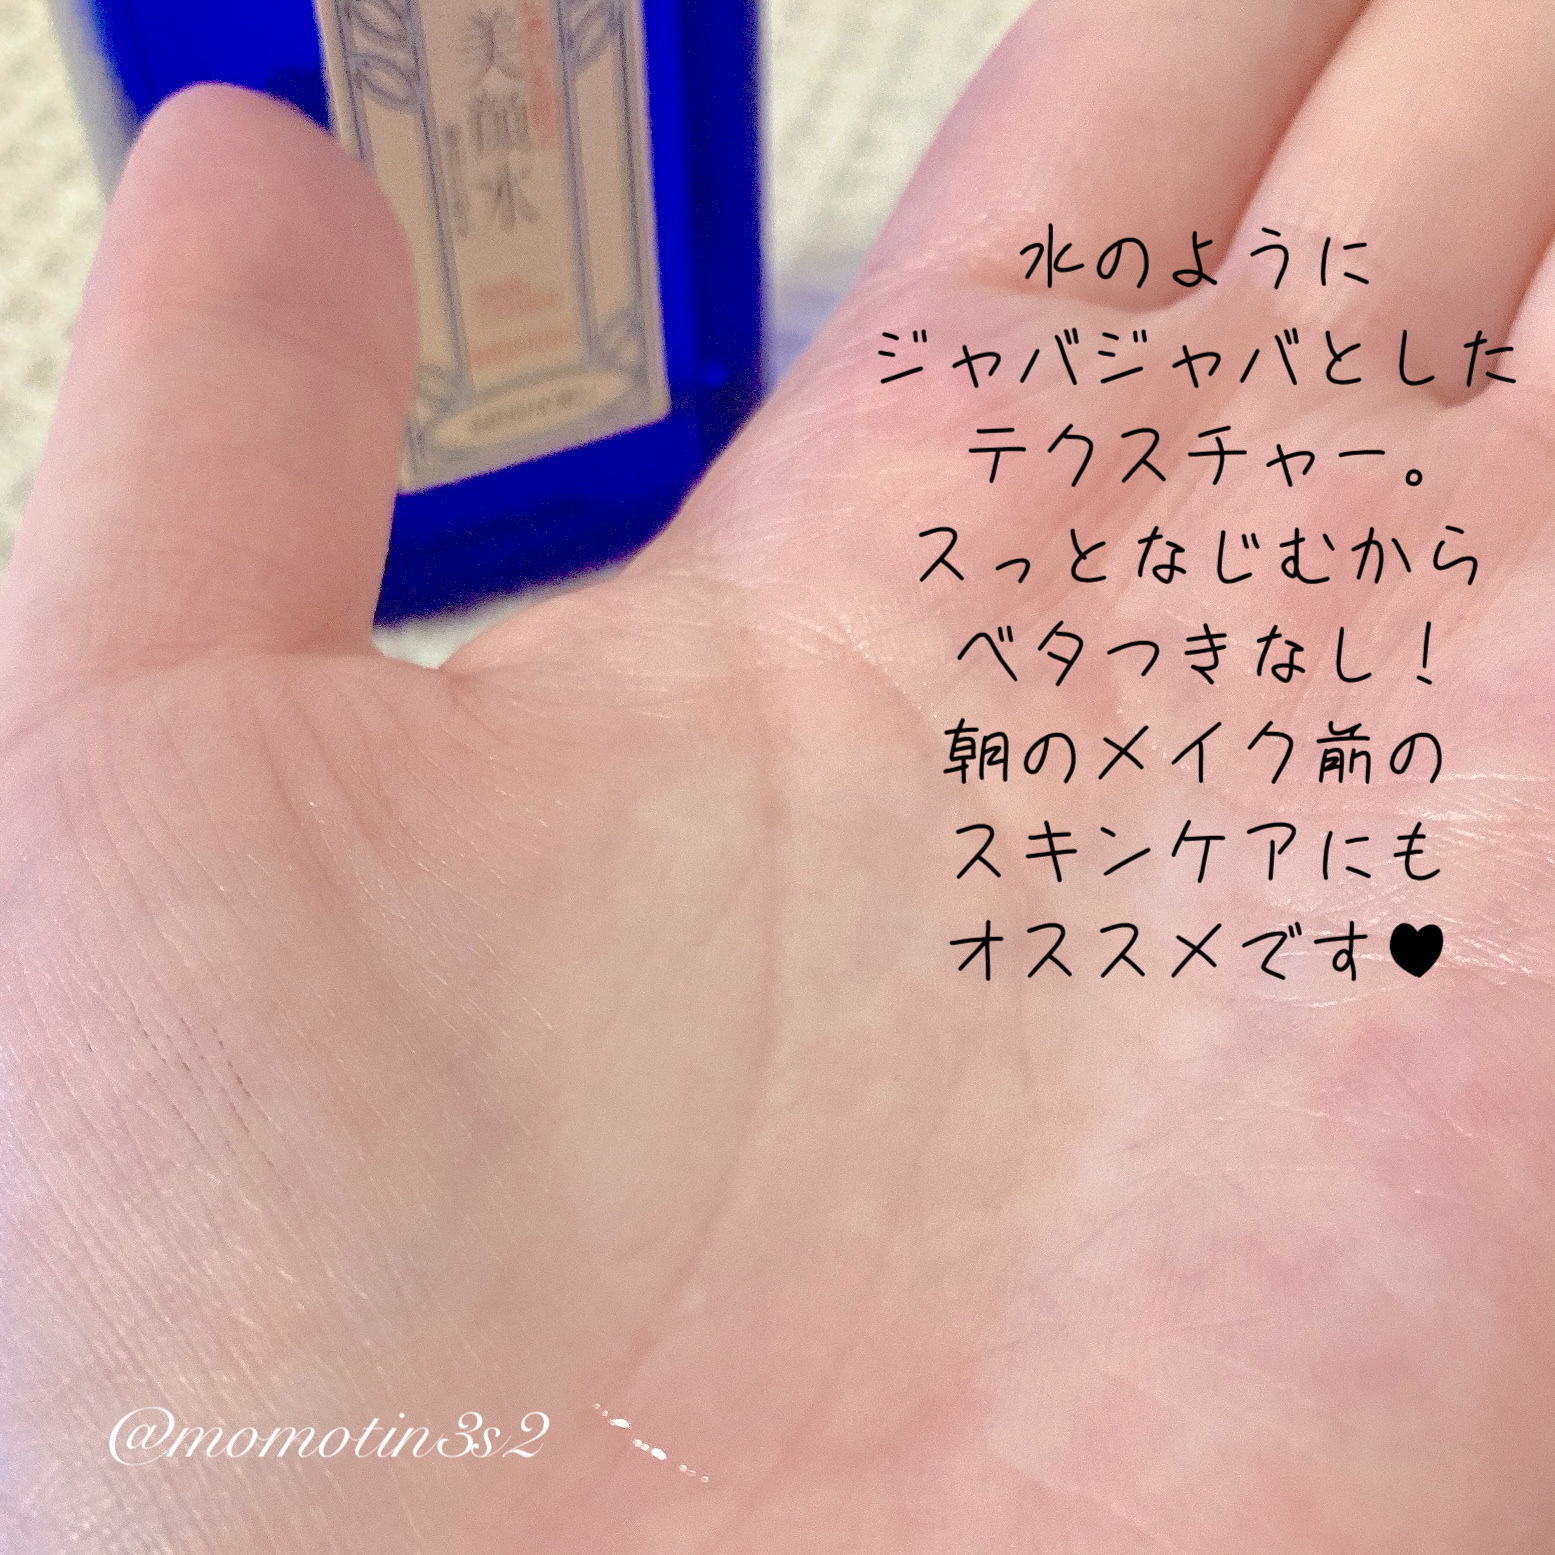 美顔水
水のように
ジャバジャバとした
テクスチャー。
スっとなじむから
ベタつきなし！
朝のメイク前の
スキンケアにも
オススメです♥
@momotin3s2